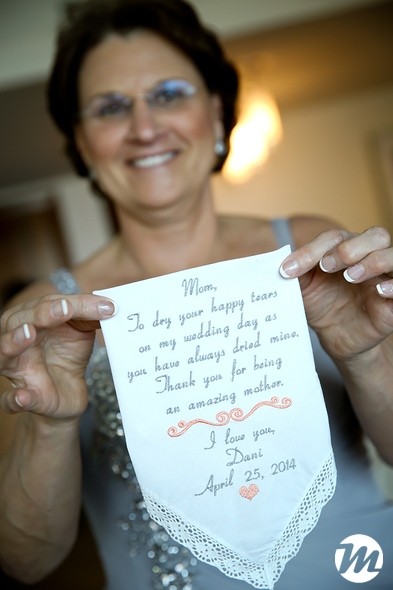 Mom,
To dry your happy tears
on my wedding day as
you have always dried mine.
Thank you for being
an amazing mother.
I love you,
Dani
April 25, 2014
M